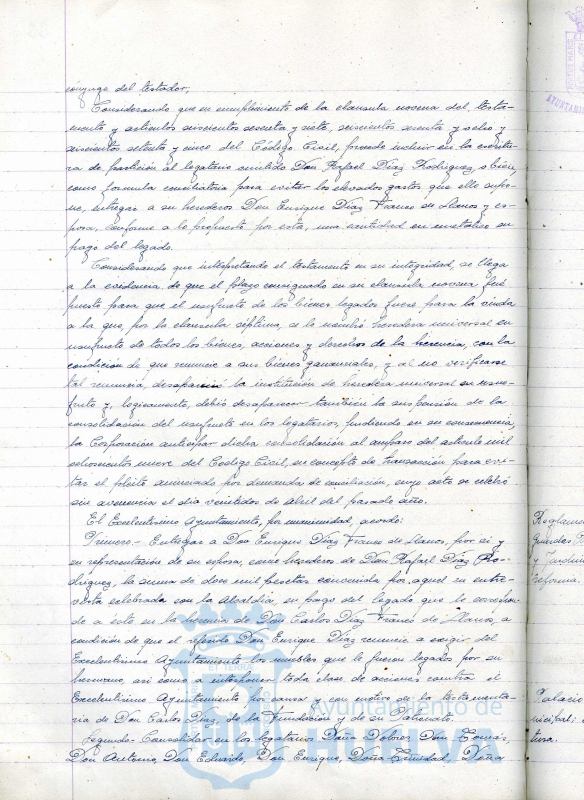 cónyuge del testador;
Considerando que en cumplimiento de la clausula novena del testa-
mento y articulos seiscientos sesenta y siete, seiscientos setenta y ocho y
seiscientos setenta y cinco del Código Civil, procede incluir en la escritu-
ra de partición al legatario omitido Don Rafael Diaz Rodriguez, o bien,
como formula conciliatoria para evitar los elevados gastos que ello supo-
ne, entregar a su heredero Don Enrique Diaz Franco de Llanos y es-
posa, conforme a lo propuesto por esta, una cantidad en metalico en
pago del legado.
Considerando que interpretando el testamento en su integridad, se llega
a la evidencia, de que el plazo consignado en su clausula novena fué
puesto para que el usufructo de los bienes legados fuese para la viuda
a la que, por la clausula septima, se le nombró heredera universal en
usufructo de todos los bienes, acciones y derechos de la herencia, con la
condición de que renuncie a sus bienes gananciales, y al no verificarse
tal renuncia, desaparecia la institución de heredera universal en usu-
fructo y, logicamente, debió desaparecer tambien la suspensión de la
consolidación del usufructo en los legatarios, pudiendo en su consecuencia,
la Corporación anticipar dicha consolidación al amparo del articulo mil
ochocientos nueve del Codigo Civil, en concepto de transacción para evi-
tar el pleito anunciado por demandas de conciliación, cuyo acto se celebró
sin avenencia el dia veintidos de Abril del pasado año.
El Excelentisimo Ayuntamiento, por unanimidad, acordó:
Primero- Entregar a Don Enrique Diaz Franco de Llanos, por si y
en representación de su esposa, como herederos de Don Rafael Diaz Ro-
driguez, la suma de doce mil pesetas convenida por aquel en entre-
vista celebrada con la Alcaldia, en pago del legado que le correspon-
de a este en la herencia de Don Carlos Diaz Franco de Llanos, a
condición de que el referido Don Enrique Diaz renuncie a exigir del
Excelentisimo Ayuntamiento los muebles que le fueron legados por su
hermano, asi como a interponer toda clase de acciones contra el
Excelentisimo Ayuntamiento por causa y con motivo de la testamenta-
ria de Don Carlos Diaz, de la Fundación y de su Patronato.
Segundo- Consolidar en los legatarios Doña Dolores, Don Tomás,
Don Antonio, Don Eduardo, Don Enrique, Doña Trinidad, Doña
Reglamen
Guardas
y Jardin
reforma.
Palacio
nicipal:
tura.
Ayuntamiento de
HUELVA